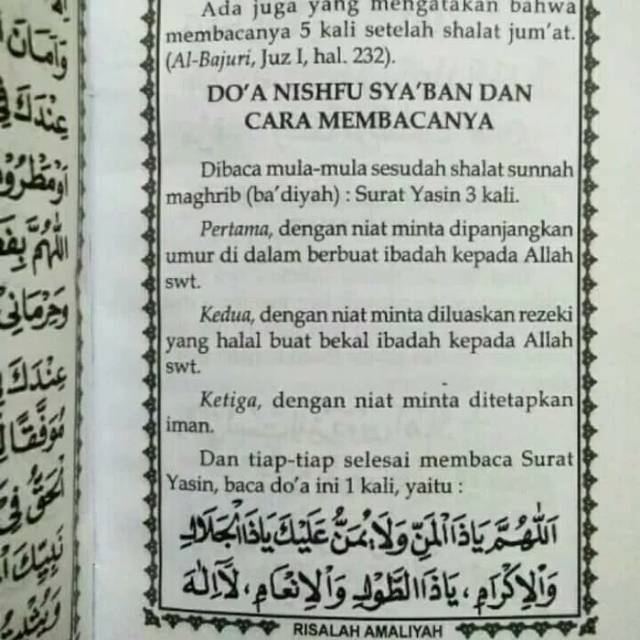 Ada juga yang mengatakan bahwa
membacanya 5 kali setelah shalat jum'at.
(Al-Bajuri, Juz I, hal. 232).
DO'A NISHFU SYA'BAN DAN
CARA MEMBACANYA
Dibaca mula-mula sesudah shalat sunnah
maghrib (ba'diyah) : Surat Yasin 3 kali.
Pertama, dengan niat minta dipanjangkan
umur di dalam berbuat ibadah kepada Allah
swt.
Kedua, dengan niat minta diluaskan rezeki
yang halal buat bekal ibadah kepada Allah
swt.
Ketiga, dengan niat minta ditetapkan
iman.
Dan tiap-tiap selesai membaca Surat
Yasin, baca do'a ini 1 kali, yaitu :
اَللّٰهُمَّ يَاذَا الْمَنِّ وَلَا يُمَنُّ عَلَيْكَ يَاذَا الْجَلَالِ
وَالْاِكْرَامِ، يَاذَا الطَّوْلِ وَالْاِنْعَامِ، لَآ اِلٰهَ
RISALAH AMALIYAH
وَاَمَانَ
عِنْدَكَ فِي
اَللّٰهُمَّ
عِنْدَكَ